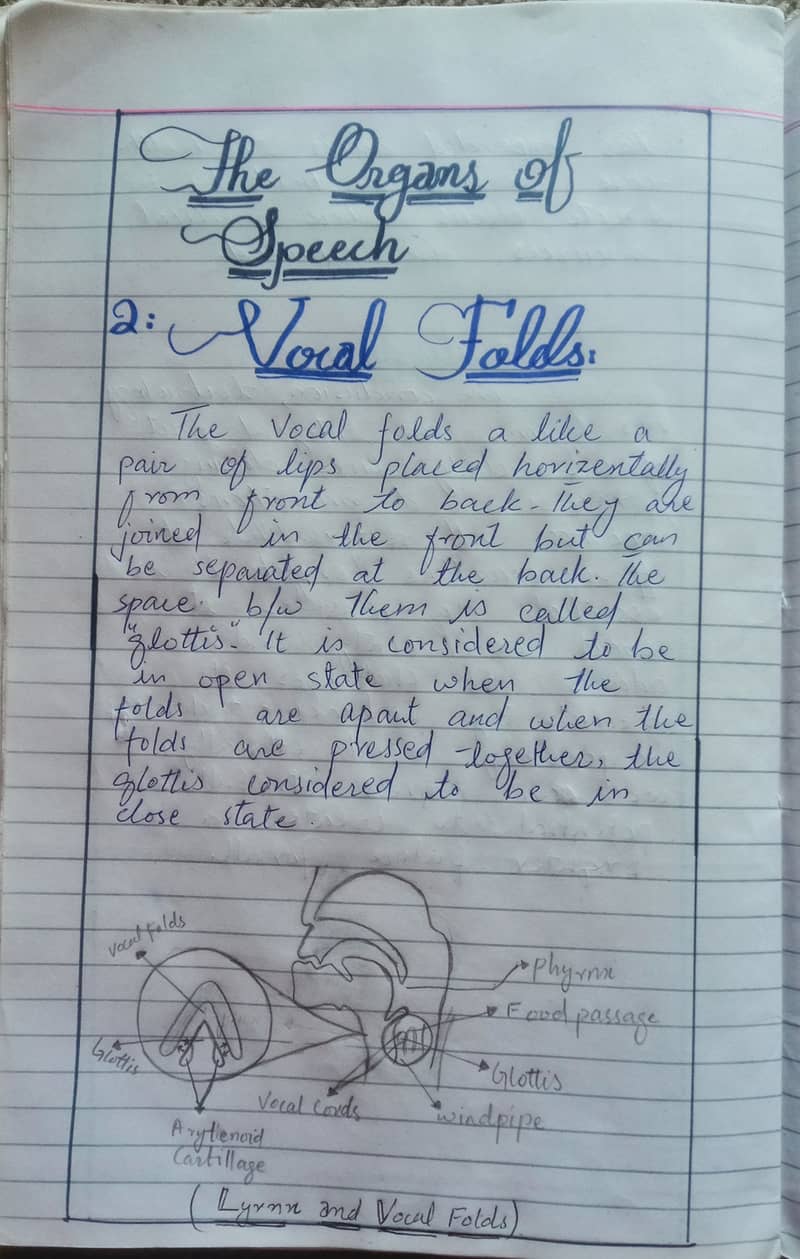 The Organs of
Speech
2: Vocal Folds:
The Vocal folds a like a
pair of lips placed horizentally
from front to back. They are
joined in the front but can
be separated at the back. The
space b/w them is called
"glottis". It is considered to be
in open state when the
folds are apart and when the
folds are pressed together, the
glottis considered to be in
close state.
Vocal Folds
Glottis
Arytienoid
Cartillage
Vocal Cords
Phyrnx
Food passage
Glottis
windpipe
(Lyrnx and Vocal Folds)